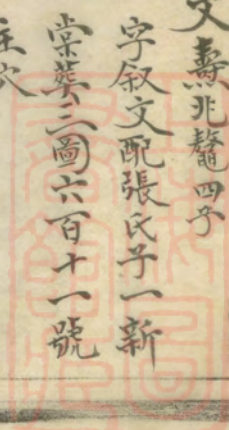 文壽兆鼇四子
字叙文配張氏子一新
棠葬三圖六百十一號
主穴